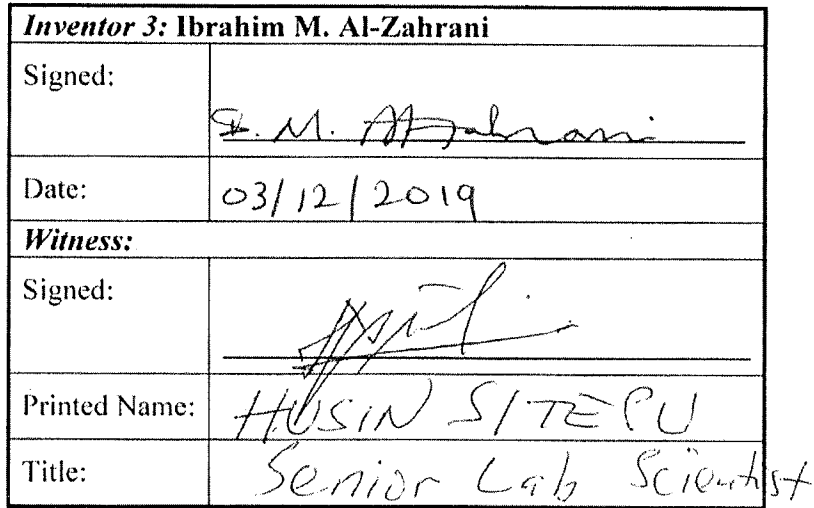 Inventor 3: Ibrahim M. Al-Zahrani
Signed:
I. M. Al-Zahrani
Date: 03/12/2019
Witness:
Signed:
Printed Name: HUSIN SITEPU
Title: Senior Lab Scientist